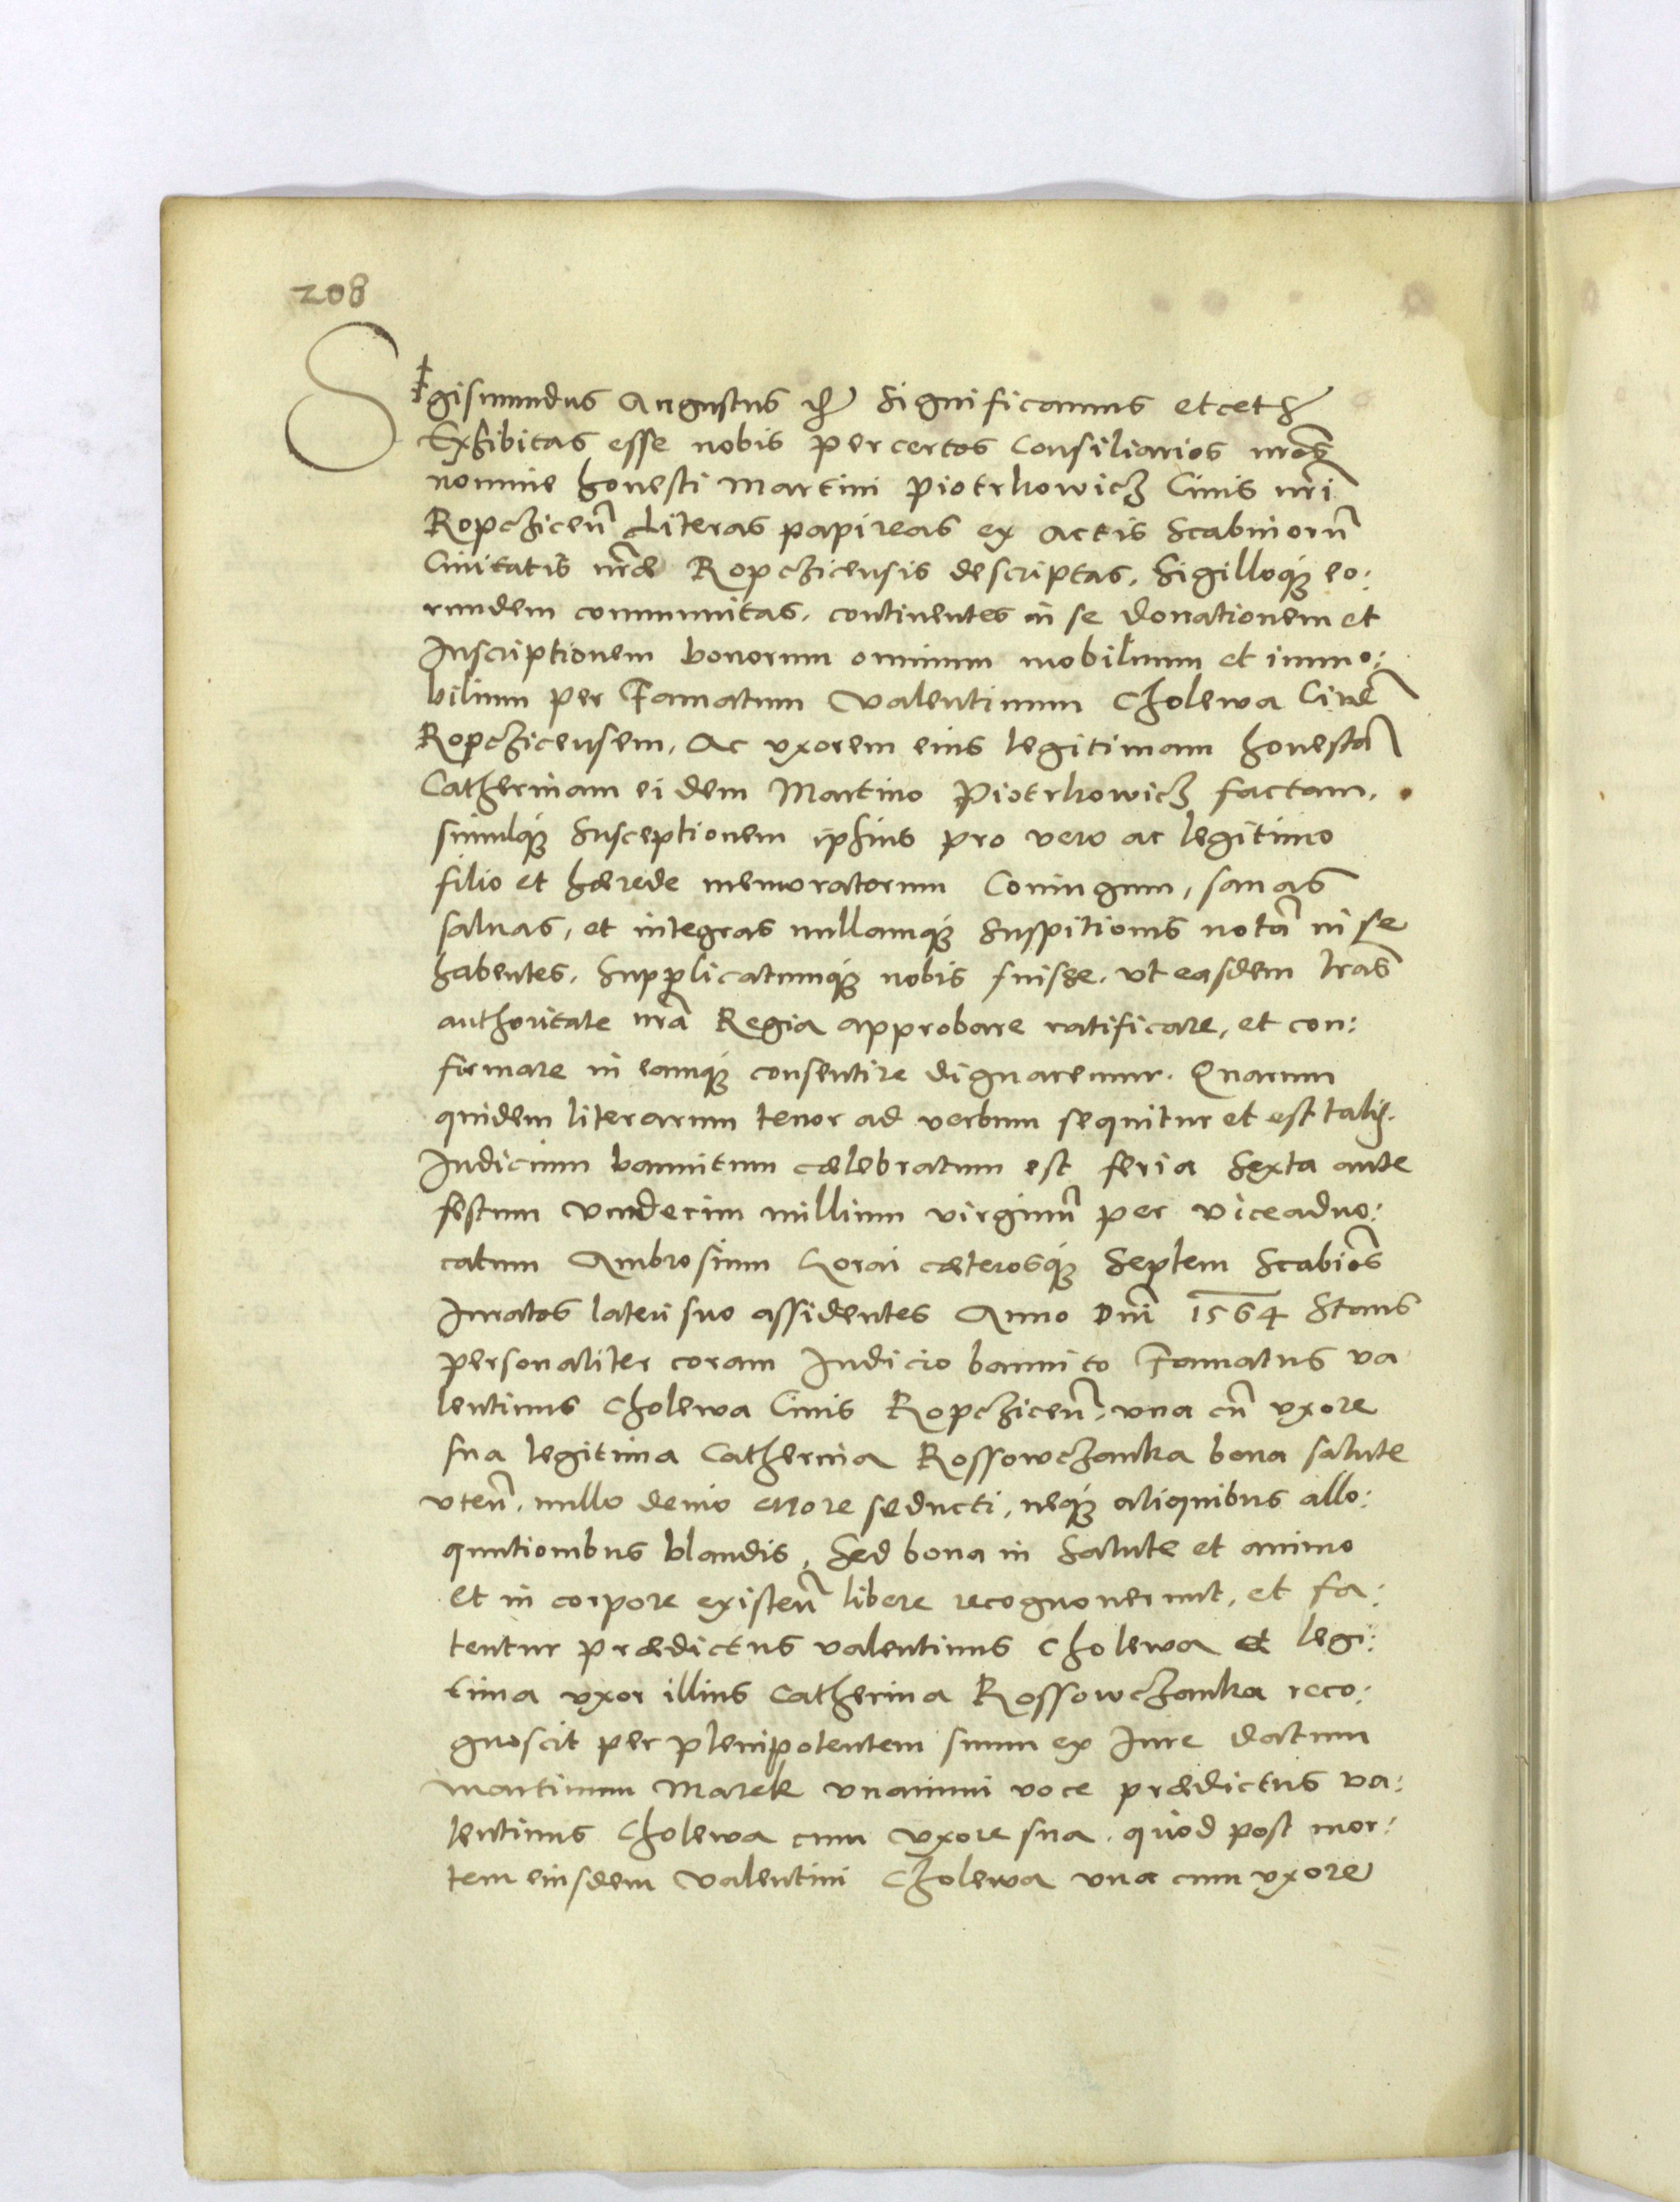 208
Sigismundus Augustus etc̃ Significamus etceter̃
Exhibitas esse nobis per certos Consiliarios nrõs
nomine honesti Martini Piotrkowicz Ciuis nrĩ
Ropcziceñ Literas papireas ex actis Scabinorũ
Ciuitatis nrãe Ropczicensis descriptas, Sigilloq́ eo:
rundem communitas, continentes in se donationem et
Inscriptionem bonorum omnium mobilium et immo:
bilium per Famatum Valentinum Cholewa Ciuẽ
Ropczicensem, Ac vxorem eius legitimam honestã
Catherinam eidem Martino Piotrkowicz factam,
simulq́ Susceptionem ipsius pro vero ac legitimo
filio et hærede memoratorum Coniugum, sanas
saluas, et integras nullamq́ Suspitionis notã in se
habentes, Supplicatumq́ nobis fuisse, vt easdem lrãs
authoritate nrã Regia approbare ratificare, et con:
firmare in eamq́ consentire dignaremur. Quarum
quidem literarum tenor ad verbum sequitur et est talis.
Iudicium bannitum cælebratum est feria Sexta ante
festum vndecim millium virginũ per viceaduo:
catum Ambrosium Korai cæterosq́ Septem Scabiõs
Iuratos lateri suo assidentes Anno Dnĩ 1564 Stans
personaliter coram Iudicio bannito Famatus va
lentinus Cholewa Ciuis Ropcziceñ: vna cũ vxore
sua legitima Catherina Rossowczanka bona salute
vteñ, nullo deuio errore seducti, neq́ aliquibus allo:
quutionibus blandis, Sed bona in Salute et animo
et in corpore existeñ libere recognouerunt, et fa:
tentur prædictus valentinus Cholewa et legi:
tima vxor illius Catherina Rossowczanka reco:
gnoscit per plenipotentem suum ex Iure datum
Martinum Marek vnanimi voce prædictus va:
lentinus Cholewa cum vxore sua, quod post mor:
tem eiusdem Valentini Cholewa vna cum vxore